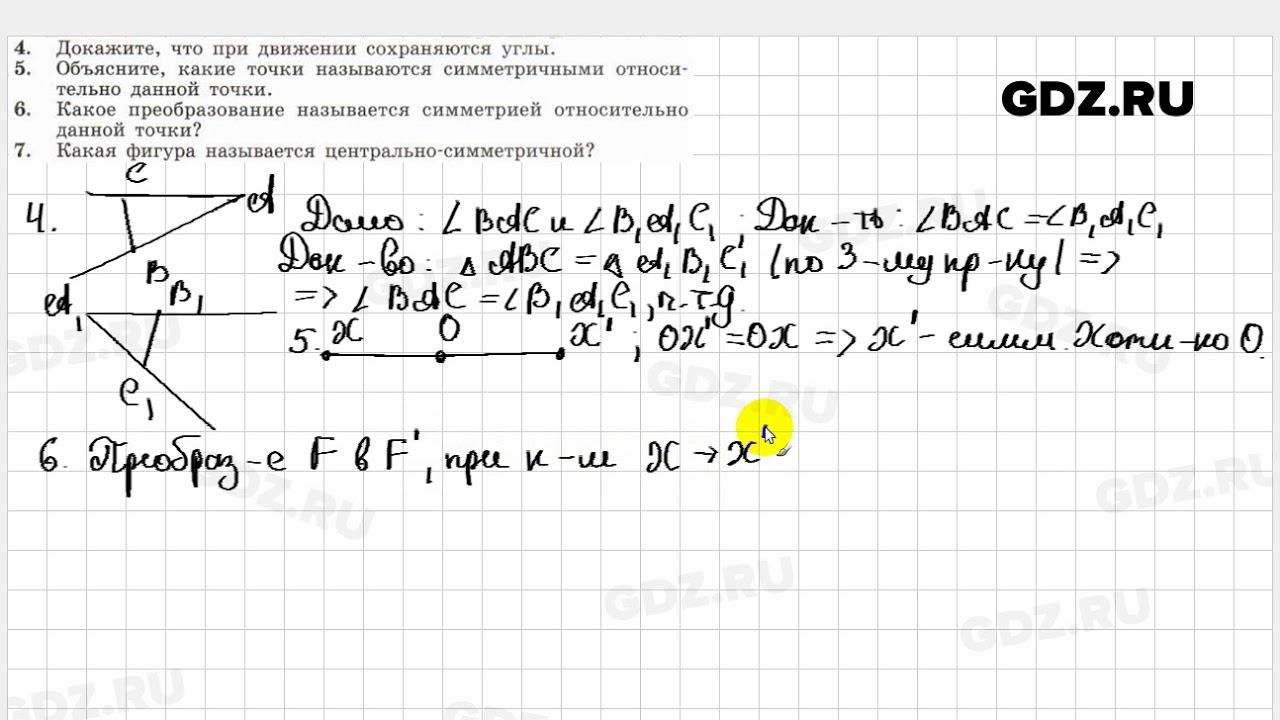 4. Докажите, что при движении сохраняются углы.
5. Объясните, какие точки называются симметричными относи-
тельно данной точки.
6. Какое преобразование называется симметрией относительно
данной точки?
7. Какая фигура называется центрально-симметричной?
GDZ.RU
C
A
4. Дано: ∠BAC и ∠B₁A₁C₁; Док-ть: ∠BAC = ∠B₁A₁C₁
Док-во: △ABC = △A₁B₁C₁ (по 3-му пр-ку) =>
B
A₁ B₁
=> ∠BAC = ∠B₁A₁C₁, ч.т.д.
5. X O X' ; OX' = OX => X' - симм. X отн-но O.
C₁
6. Преобраз-е F в F', при к-м X → X'
GDZ.RU
GDZ.RU
GDZ.RU
GDZ.RU
GDZ.RU
GDZ.RU
GDZ.RU
GDZ.RU
GDZ.RU
GDZ.RU
GDZ.RU